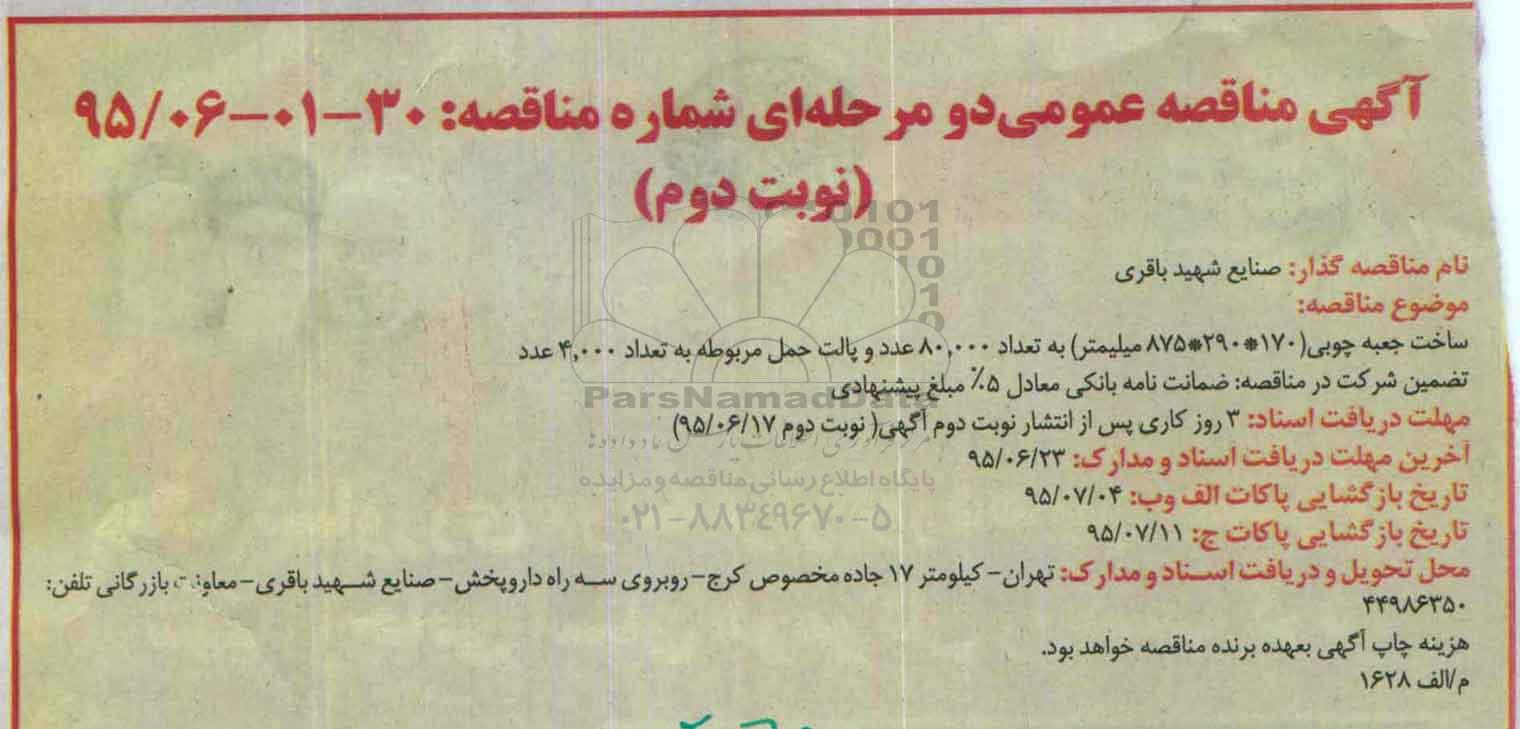 آگهی مناقصه عمومی دو مرحله‌ای شماره مناقصه: ۳۰-۰۱-۹۵/۰۶
(نوبت دوم)
نام مناقصه گذار: صنایع شهید باقری
موضوع مناقصه:
ساخت جعبه چوبی(۱۷۰*۲۹۰*۸۷۵ میلیمتر) به تعداد ۸۰,۰۰۰ عدد و پالت حمل مربوطه به تعداد ۴,۰۰۰ عدد
تضمین شرکت در مناقصه: ضمانت نامه بانکی معادل ۵٪ مبلغ پیشنهادی
مهلت دریافت اسناد: ۳ روز کاری پس از انتشار نوبت دوم آگهی( نوبت دوم ۹۵/۰۶/۱۷)
آخرین مهلت دریافت اسناد و مدارک: ۹۵/۰۶/۲۳
تاریخ بازگشایی پاکات الف وب: ۹۵/۰۷/۰۴
تاریخ بازگشایی پاکات ج: ۹۵/۰۷/۱۱
محل تحویل و دریافت اسناد و مدارک: تهران- کیلومتر ۱۷ جاده مخصوص کرج-روبروی سه راه داروپخش- صنایع شهید باقری-معاونت بازرگانی تلفن:
۴۴۹۸۶۳۵۰
هزینه چاپ آگهی بعهده برنده مناقصه خواهد بود.
م/الف ۱۶۲۸
ParsNamadData
پایگاه اطلاع رسانی مناقصه و مزایده
۰۲۱-۸۸۳۴۹۶۷۰-۵